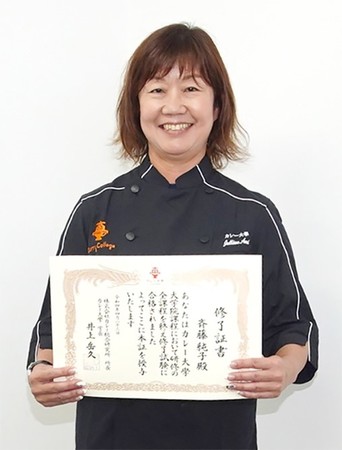 カレー大學
College
修了証書
斉藤 純子 殿
あなたはカレー大学
大学院課程において研修の
全課程を終え修了試験に
合格されました
よってここに本証を授与
いたします
井上岳久